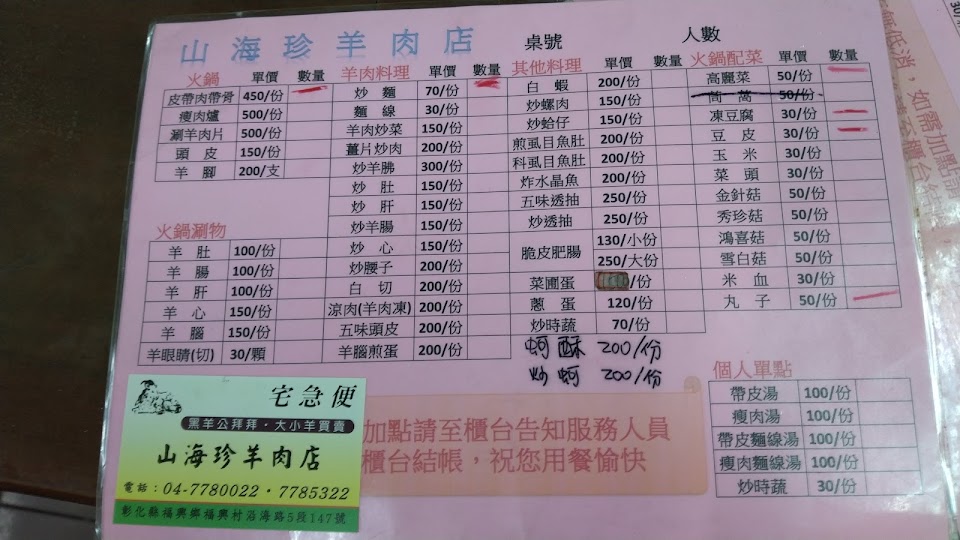 山海珍羊肉店 桌號 人數
火鍋 單價 數量
皮帶肉帶骨 450/份
瘦肉爐 500/份
涮羊肉片 500/份
頭皮 150/份
羊腳 200/支
火鍋涮物
羊肚 100/份
羊腸 100/份
羊肝 100/份
羊心 150/份
羊腦 150/份
羊眼睛(切) 30/顆
羊肉料理 單價 數量
炒麵 70/份
麵線 30/份
羊肉炒菜 150/份
薑片炒肉 200/份
炒羊肺 300/份
炒肚 150/份
炒肝 150/份
炒羊腸 150/份
炒心 150/份
炒腰子 200/份
白切 200/份
涼肉(羊肉凍) 200/份
五味頭皮 200/份
羊腦煎蛋 200/份
其他料理 單價 數量
白蝦 200/份
炒螺肉 150/份
炒蛤仔 150/份
煎虱目魚肚 200/份
科虱目魚肚 200/份
炸水晶魚 200/份
五味透抽 250/份
炒透抽 250/份
脆皮肥腸 130/小份
250/大份
菜圃蛋 /份
蔥蛋 120/份
炒時蔬 70/份
蚵酥 200/份
炒蚵 200/份
火鍋配菜 單價 數量
高麗菜 50/份
茼蒿 50/份
凍豆腐 30/份
豆皮 30/份
玉米 30/份
菜頭 30/份
金針菇 50/份
秀珍菇 50/份
鴻喜菇 50/份
雪白菇 50/份
米血 30/份
丸子 50/份
個人單點
帶皮湯 100/份
瘦肉湯 100/份
帶皮麵線湯 100/份
瘦肉麵線湯 100/份
炒時蔬 30/份
加點請至櫃台告知服務人員
櫃台結帳，祝您用餐愉快
宅急便
黑羊公拜拜・大小羊買賣
山海珍羊肉店
電話：04-7780022・7785322
彰化縣福興鄉福興村沿海路5段147號